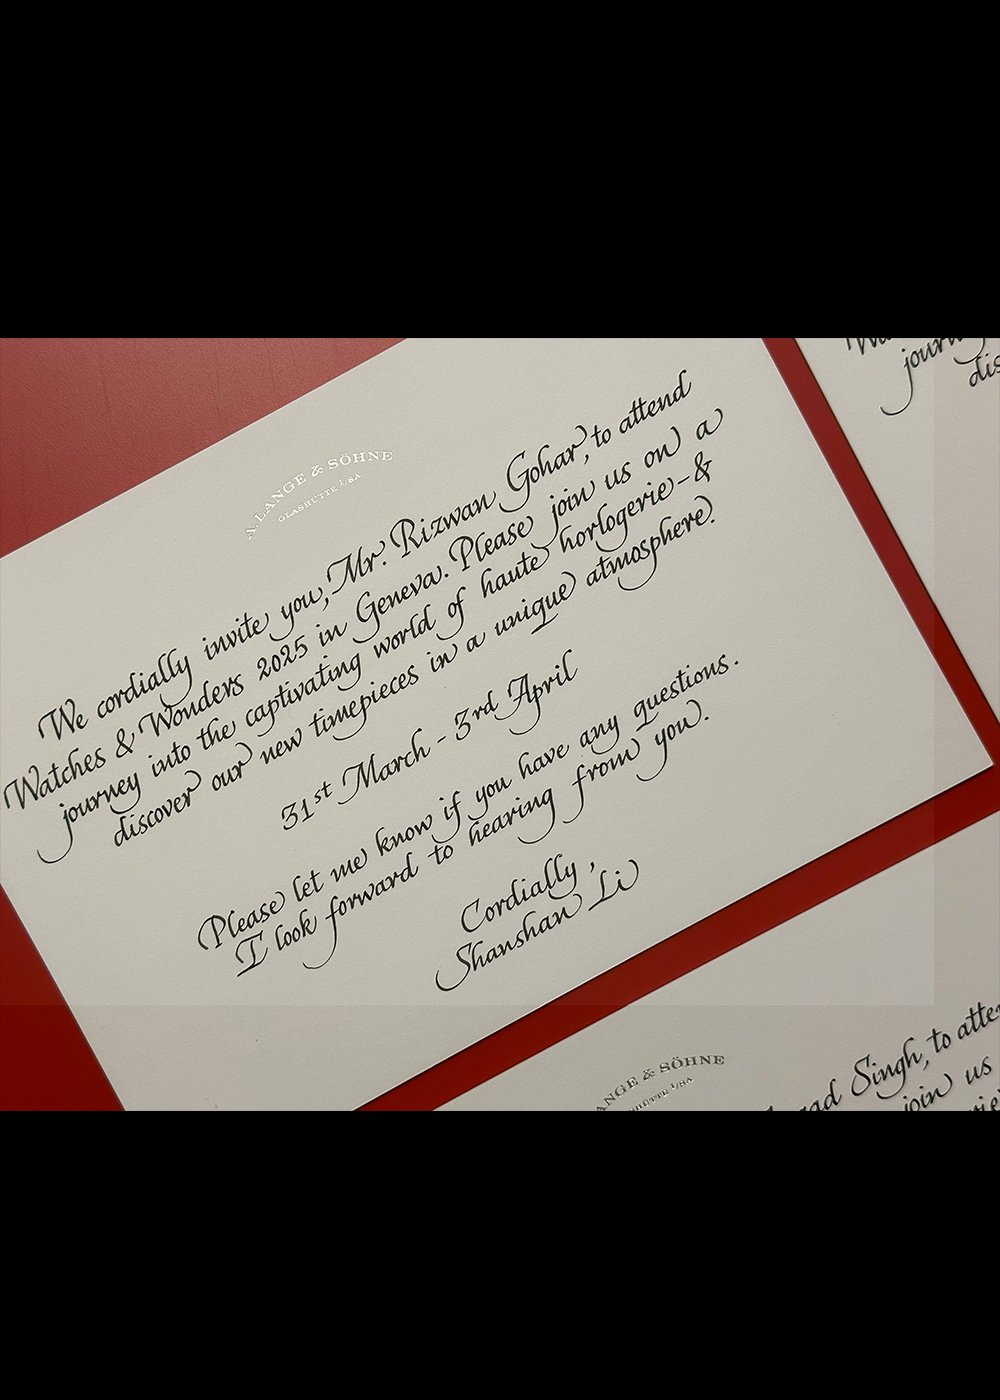 A. LANGE & SÖHNE
GLASHÜTTE I/SA
We cordially invite you, Mr. Rizwan Gohar, to attend
Watches & Wonders 2025 in Geneva. Please join us on a
journey into the captivating world of haute horlogerie - &
discover our new timepieces in a unique atmosphere.
31st March - 3rd April
Please let me know if you have any questions.
I look forward to hearing from you.
Cordially,
Shanshan Li
journ
dis
LANGE & SÖHNE
I/SA
Singh, to atte
join us